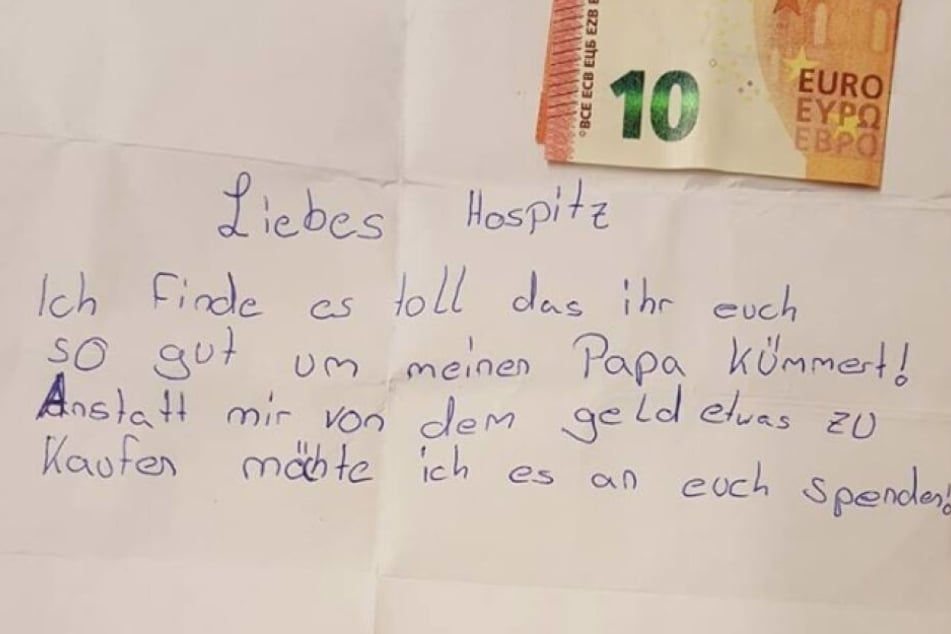 BCE ECB ЕЦБ EZB
10
EURO
ΕΥΡΩ
ЕВРО
Liebes Hospitz
Ich finde es toll das ihr euch
so gut um meinen Papa kümmert!
Anstatt mir von dem geld etwas zu
Kaufen möchte ich es an euch spenden!